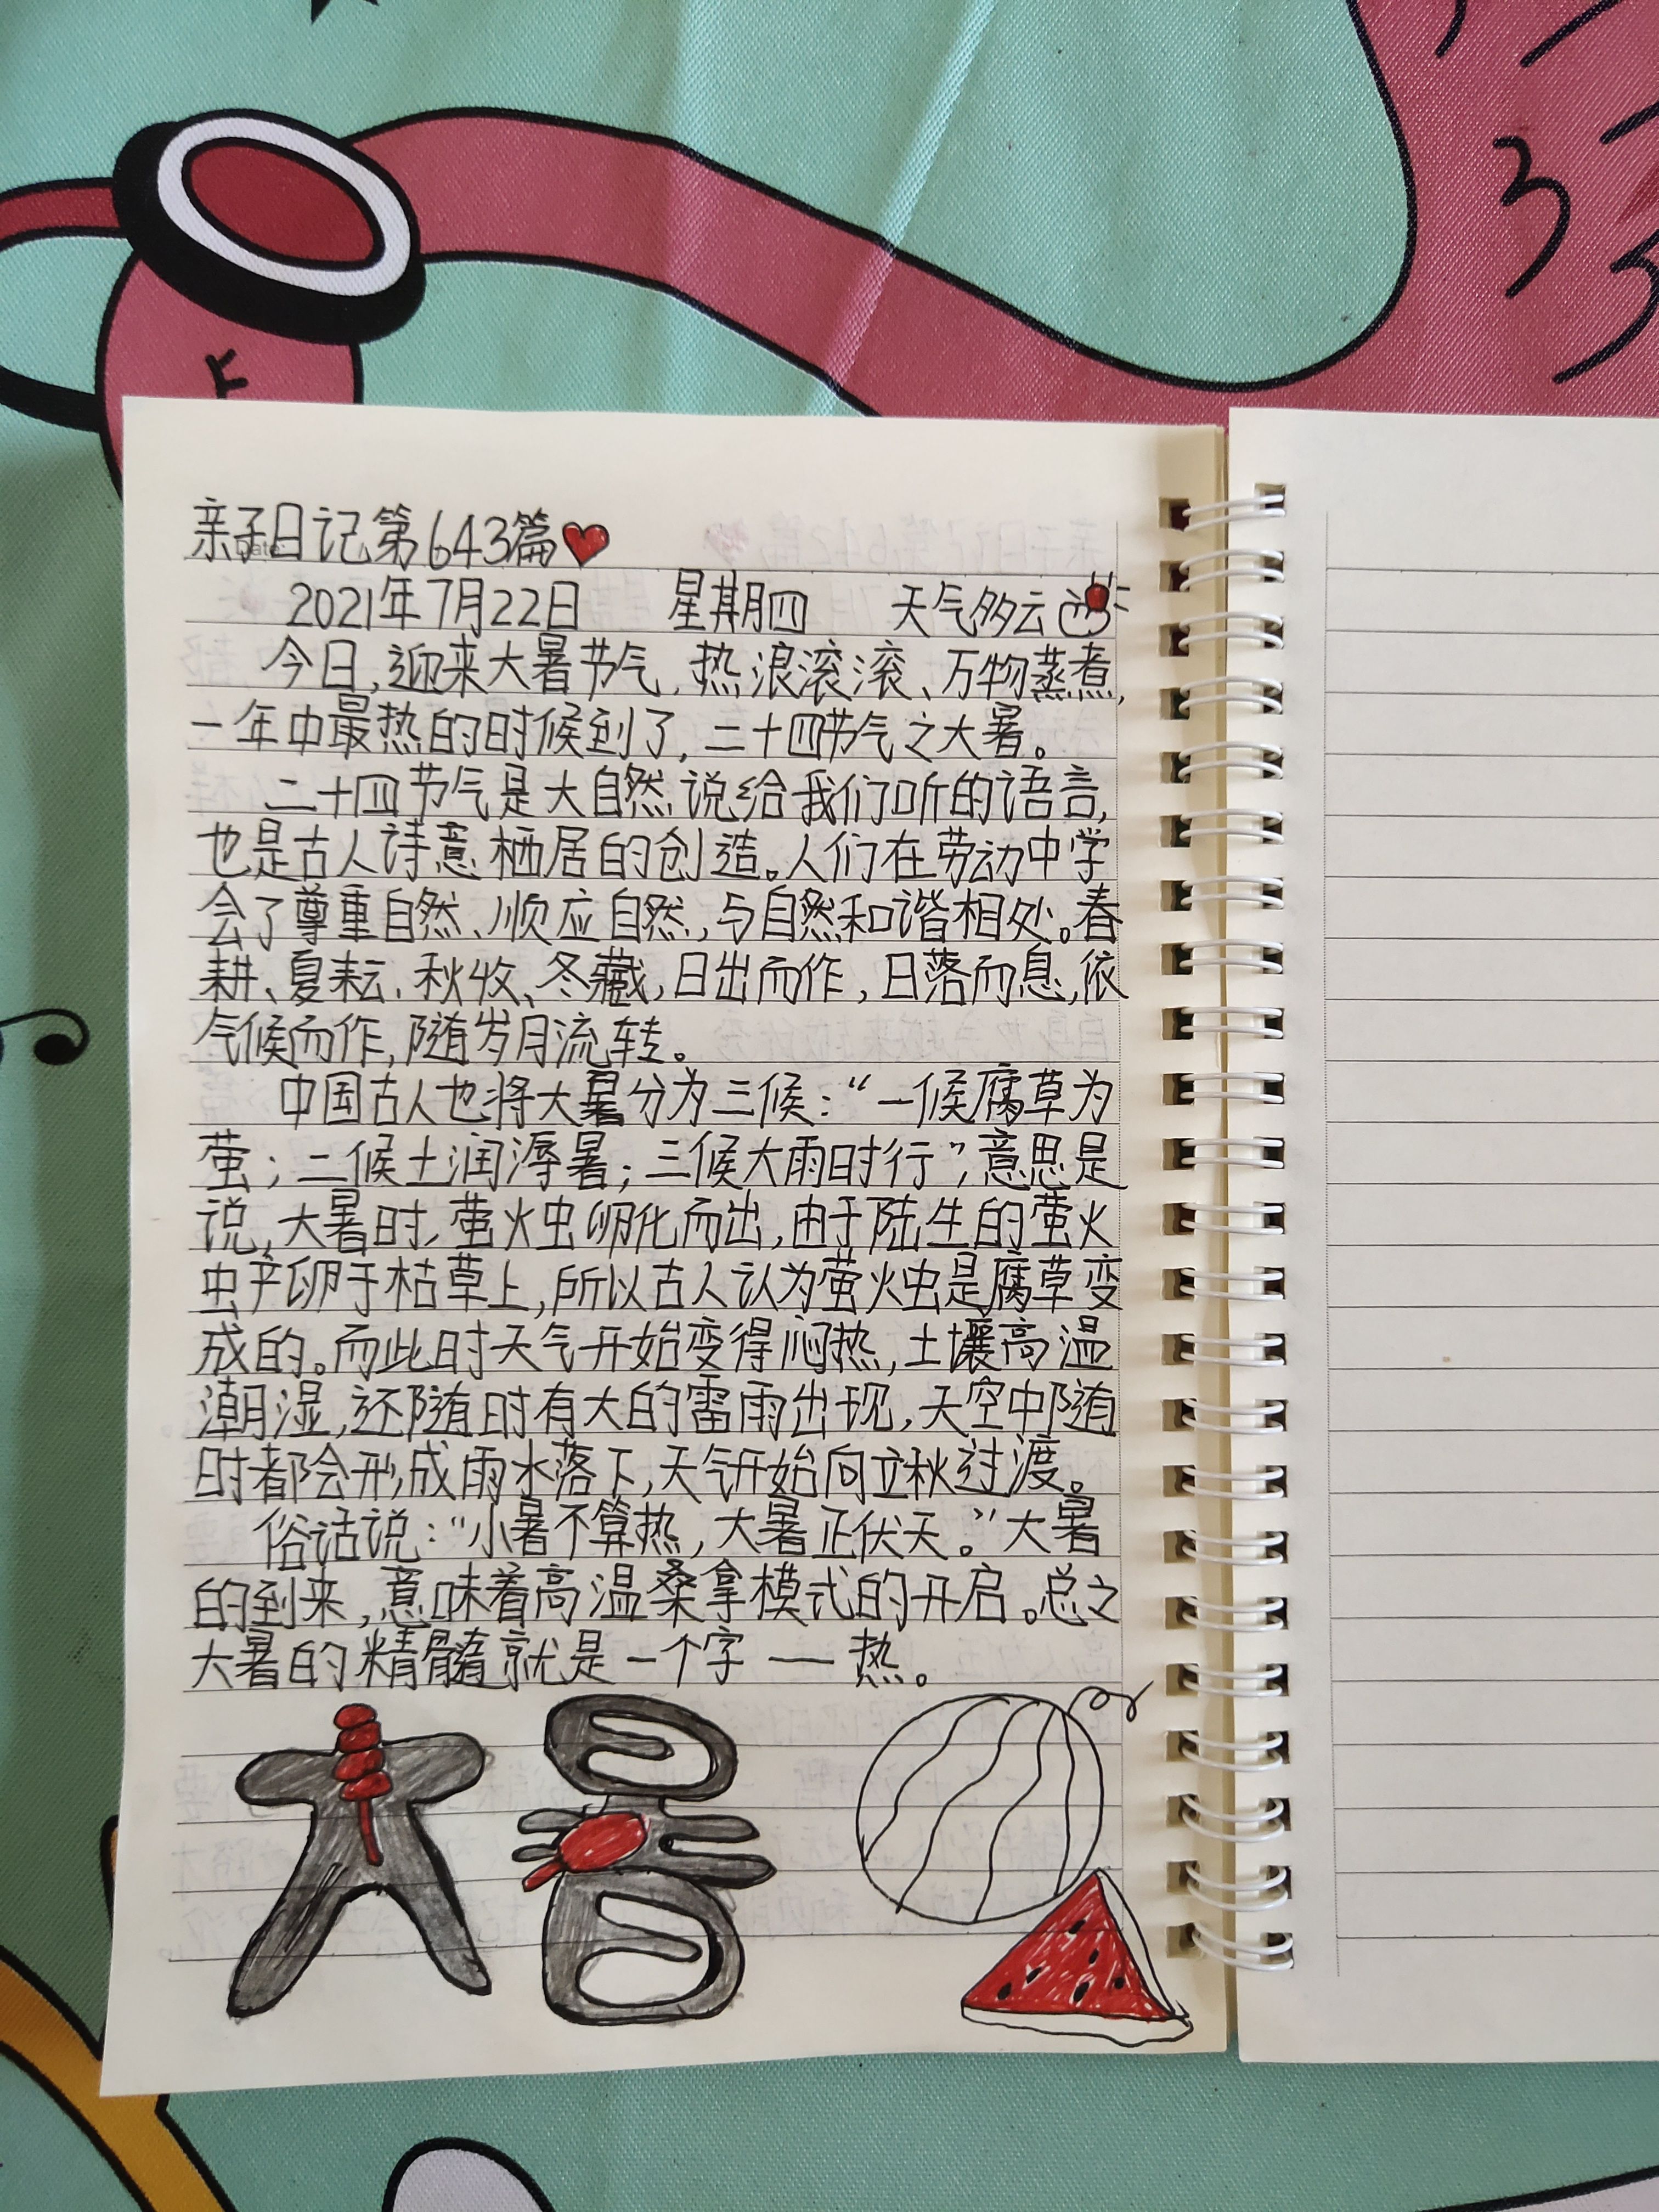 亲子日记第643篇
2021年7月22日 星期四 天气多云
今日,迎来大暑节气,热浪滚滚、万物蒸煮,
一年中最热的时候到了,二十四节气之大暑。
二十四节气是大自然说给我们听的语言,
也是古人诗意栖居的创造。人们在劳动中学
会了尊重自然、顺应自然,与自然和谐相处。春
耕、夏耘、秋收、冬藏,日出而作,日落而息,依
气候而作,随岁月流转。
中国古人也将大暑分为三候:“一候腐草为
萤;二候土润溽暑;三候大雨时行”,意思是
说,大暑时,萤火虫卵化而出,由于陆生的萤火
虫产卵于枯草上,所以古人认为萤火虫是腐草变
成的。而此时天气开始变得闷热,土壤高温
潮湿,还随时有大的雷雨出现,天空中随
时都会形成雨水落下,天气开始向立秋过渡。
俗话说:“小暑不算热,大暑正伏天。”大暑
的到来,意味着高温桑拿模式的开启。总之
大暑的精髓就是一个字——热。
大暑